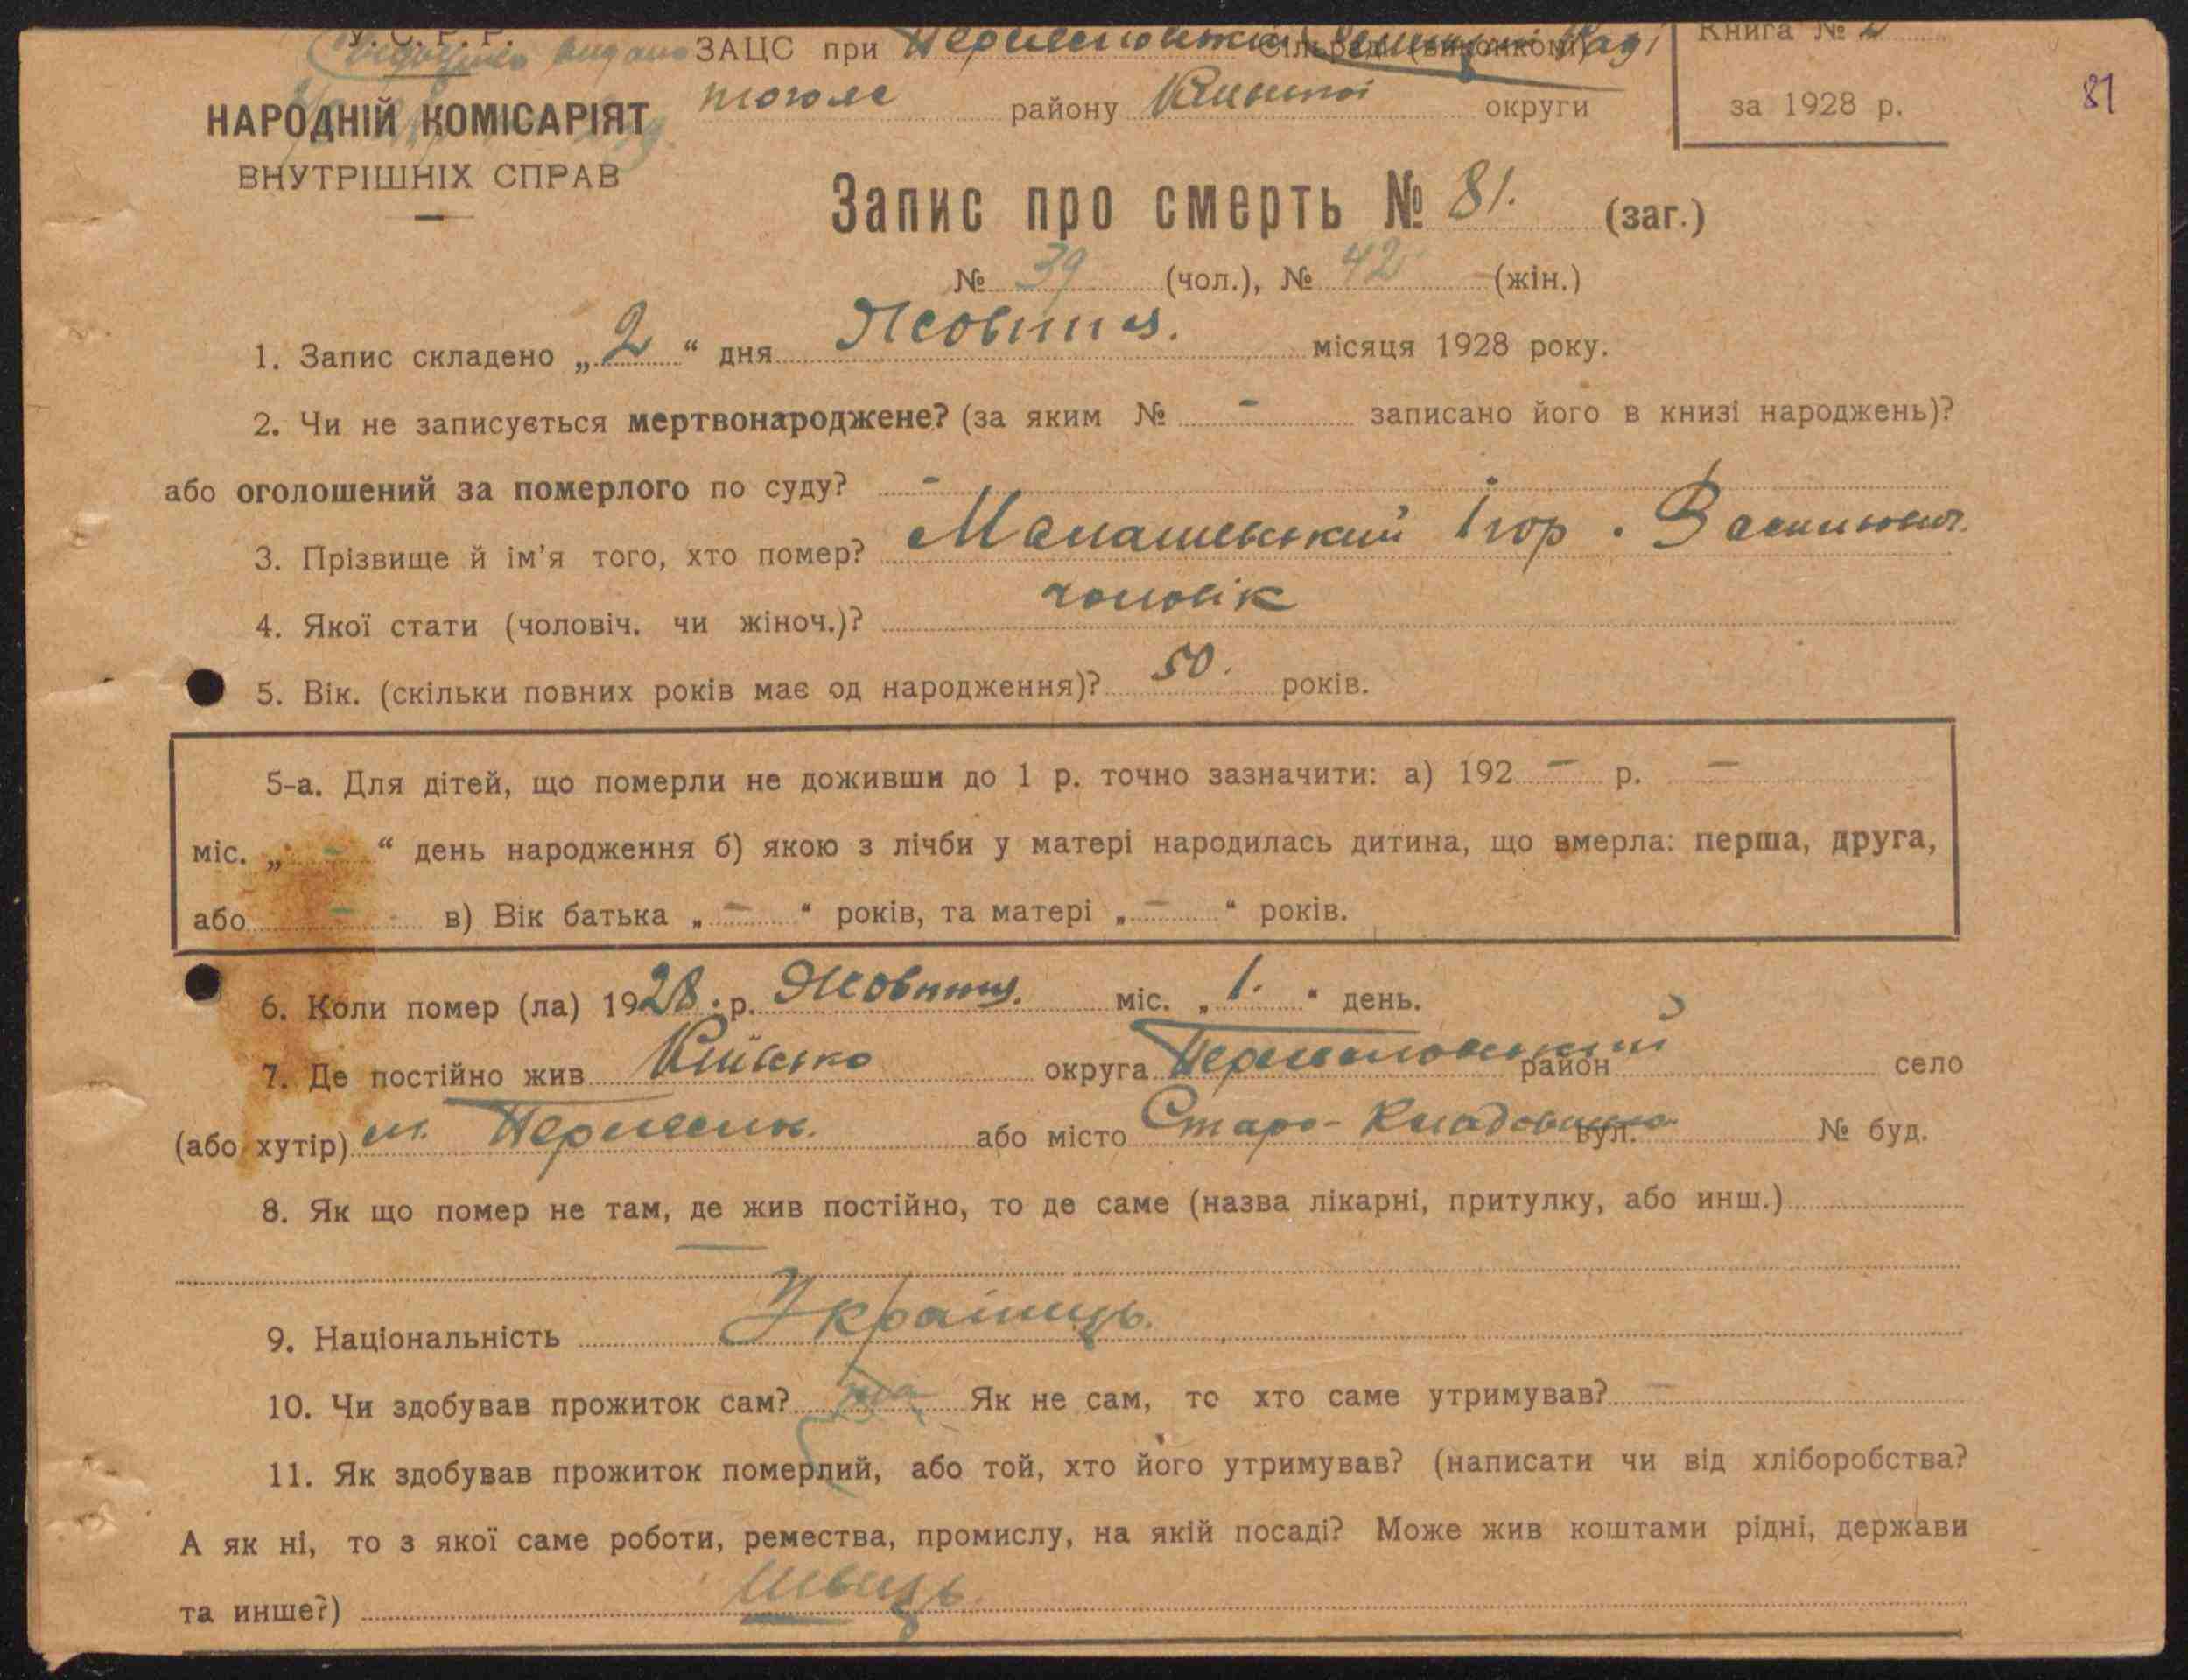 У. С. Р. Р.
видано ЗАЦС при Сільраді (виконкомі) Книга № 2
НАРОДНІЙ КОМІСАРІЯТ тогож району округи за 1928 р. 81
ВНУТРІШНІХ СПРАВ
Запис про смерть № 81. (заг.)
№ 39 (чол.), № 42 (жін.)
1. Запис складено „ 2 “ дня Жовтня. місяця 1928 року.
2. Чи не записується мертвонароджене? (за яким № - записано його в книзі народжень)?
або оголошений за померлого по суду? -
3. Прізвище й ім'я того, хто помер? Ігор
4. Якої стати (чоловіч. чи жіноч.)? чоловік
5. Вік. (скільки повних років має од народження)? 50. років.
5-а. Для дітей, що померли не доживши до 1 р. точно зазначити: а) 192 - р. -
міс. „ - “ день народження б) якою з лічби у матері народилась дитина, що вмерла: перша, друга,
або - в) Вік батька „ - “ років, та матері „ - “ років.
6. Коли помер (ла) 1928. р. Жовтня. міс. „ 1. “ день.
7. Де постійно жив округа район село
(або хутір) м. або місто Старо- вул. № буд.
8. Як що помер не там, де жив постійно, то де саме (назва лікарні, притулку, або инш.)
9. Національність Українець.
10. Чи здобував прожиток сам? Як не сам, то хто саме утримував? -
11. Як здобував прожиток померлий, або той, хто його утримував? (написати чи від хліборобства?
А як ні, то з якої саме роботи, ремества, промислу, на якій посаді? Може жив коштами рідні, держави
та инше?) Швець.